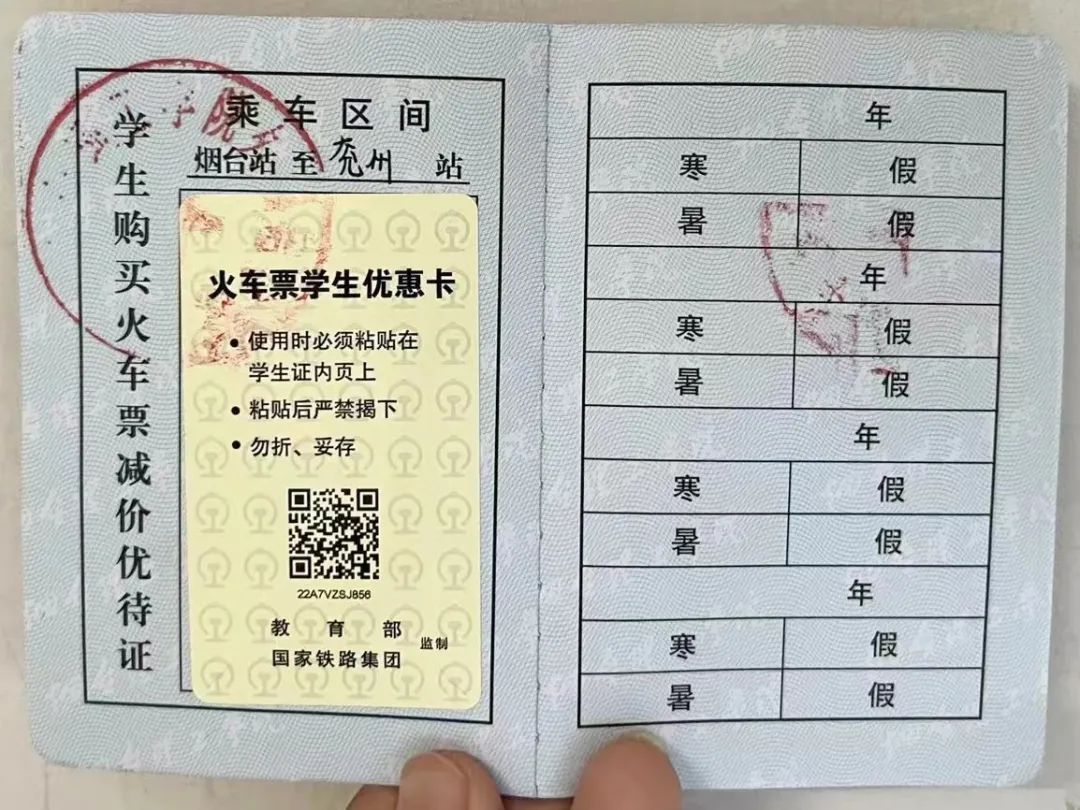 学生购买火车票减价优待证
乘车区间
烟台站 至 兖州 站
火车票学生优惠卡
• 使用时必须粘贴在
学生证内页上
• 粘贴后严禁揭下
• 勿折、妥存
22A7VZSJ856
教育部
国家铁路集团
监制
年
寒 假
暑 假
年
寒 假
暑 假
年
寒 假
暑 假
年
寒 假
暑 假